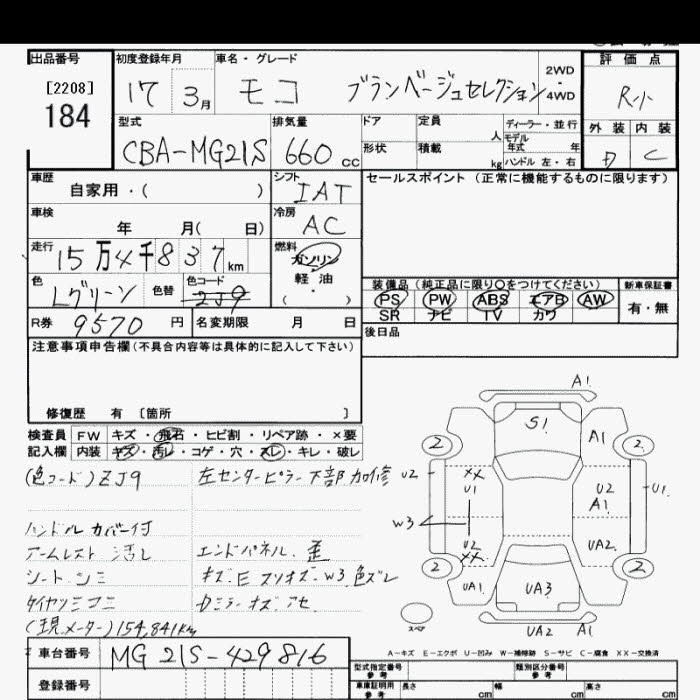 出品番号 初度登録年月 車名・グレード 評価点
[2208] 17 3月 モコ ブランベージュセレクション 2WD・4WD R小
184
型式 排気量 ドア 定員 人 ディーラー・並行 外装 内装
CBA-MG21S 660cc 形状 積載 kg モデル年式 年 C
ハンドル 左・右
車歴 シフト セールスポイント (正常に機能するものに限ります)
自家用・( ) IAT
車検 冷房
年 月( 日) AC
走行 燃料
15万4千837km ガソリン・軽油・( )
色 色替 色コード 装備品 (純正品に限り○をつけてください) 新車保証書
Lグリーン 2J9 PS PW ABS エアB AW 有・無
SR ナビ TV カワ
R券 9570円 名変期限 月 日 後日品
注意事項申告欄(不具合内容等は具体的に記入して下さい)
修復歴 有 〔箇所 〕
検査員 FW キズ・飛石・ヒビ割・リペア跡・×要
記入欄 内装 キズ・汚レ・コゲ・穴・スレ・キレ・破レ
(色コード)ZJ9 左センターピラー下部加修
ハンドルカバー付
アームレスト エンドパネル、歪
シート シミ キズ・E スリキズ・W3 色ズレ
タイヤ
(現メーター)154,841km
A1
S1 A1
2 2
U2 XX U1 U2 A1 U1
W3
U2 XX UA2
2 2
UA1 UA3 UA1
スペア
UA2 A1
A-キズ E-エクボ U-凹み W-補修跡 S-サビ C-腐食 XX-交換済
車台番号 MG21S-429816 型式指定番号 類別区分番号
参考 参考
登録番号 車庫証明用参考 長さ cm 幅 cm 高さ cm